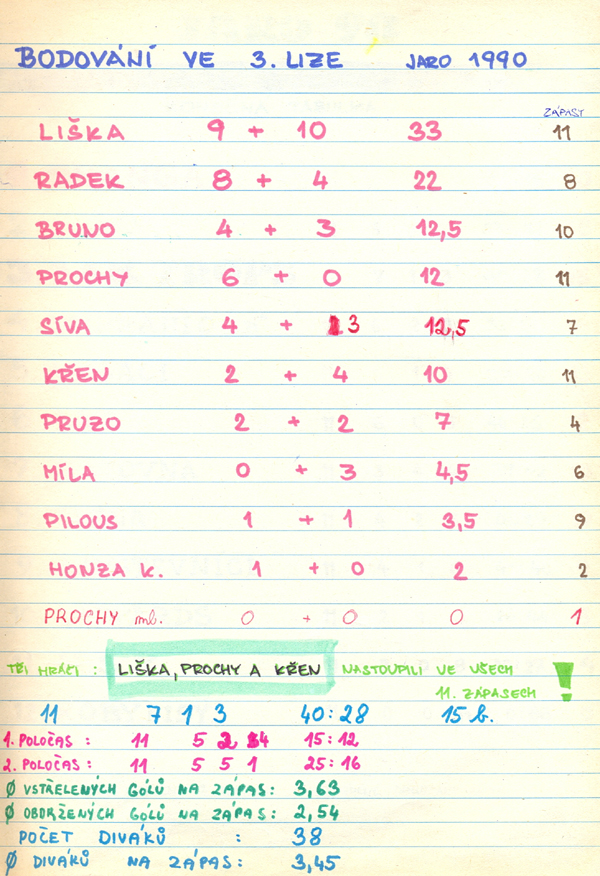 BODOVÁNÍ VE 3. LIZE JARO 1990
ZÁPASY
LIŠKA 9 + 10 33 11
RADEK 8 + 4 22 8
BRUNO 4 + 3 12,5 10
PROCHY 6 + 0 12 11
SÍVA 4 + 3 12,5 7
KŘEN 2 + 4 10 11
PRUZO 2 + 2 7 4
MÍLA 0 + 3 4,5 6
PILOUS 1 + 1 3,5 9
HONZA K. 1 + 0 2 2
PROCHY ml. 0 + 0 0 1
TŘI HRÁČI : LIŠKA, PROCHY A KŘEN NASTOUPILI VE VŠECH
11. ZÁPASECH !
11 7 1 3 40:28 15 b.
1. POLOČAS : 11 5 2 4 15:12
2. POLOČAS : 11 5 5 1 25:16
Ø VSTŘELENÝCH GÓLŮ NA ZÁPAS: 3,63
Ø OBDRŽENÝCH GÓLŮ NA ZÁPAS: 2,54
POČET DIVÁKŮ : 38
Ø DIVÁKŮ NA ZÁPAS: 3,45